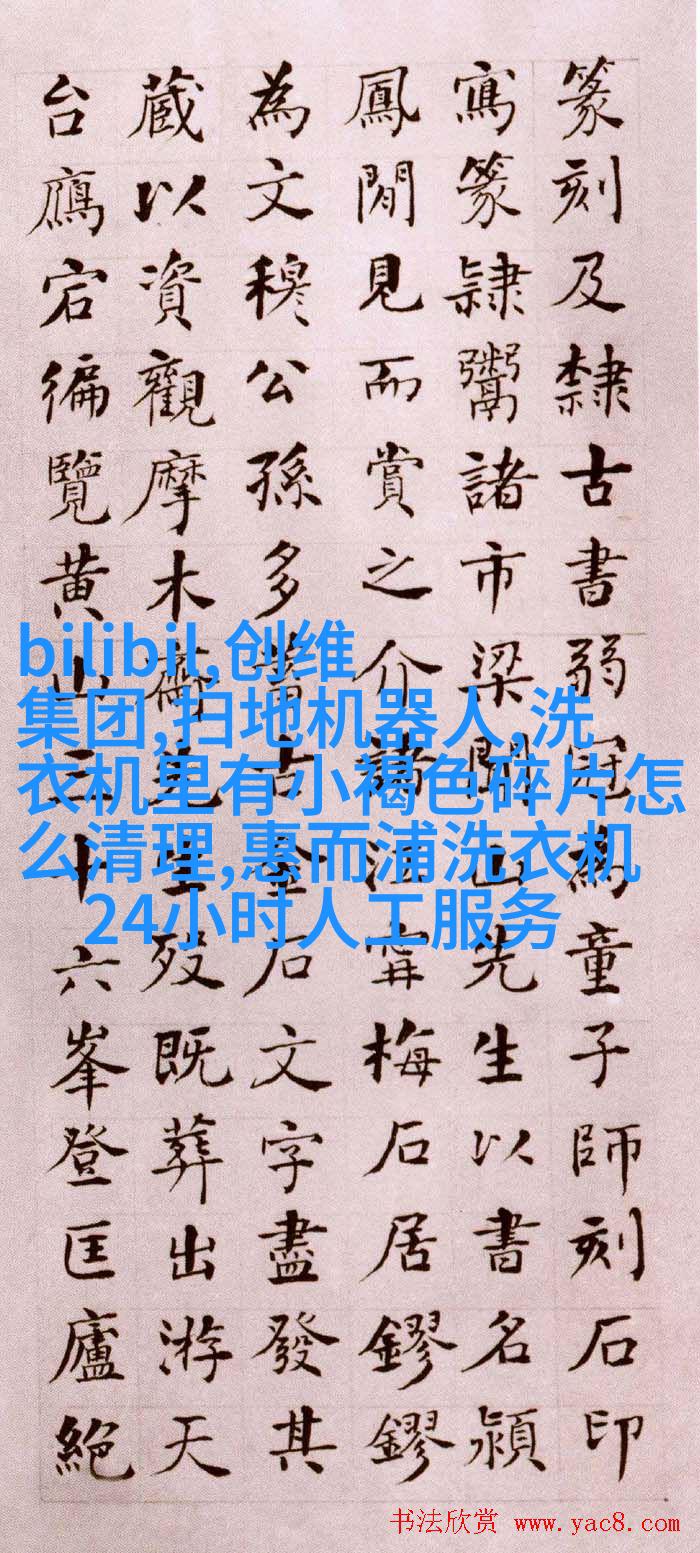 篆刻及隸古書弱冠為童子師刻石印
寫篆隸鬻諸市梁聞山先生以書名潁
鳳閒見而賞之介謁江寧梅石居鏐鏐
為文穆公孫多蓄古金石文字盡發其
藏以資觀摩木齋先生歿既葬出游天
台鴈宕徧覽黃山三十六峯登匡廬絕
bilibil,创维
集团,扫地机器人,洗
衣机里有小褐色碎片怎
么清理,惠而浦洗衣机
24小时人工服务
书法欣赏 www.yac8.com